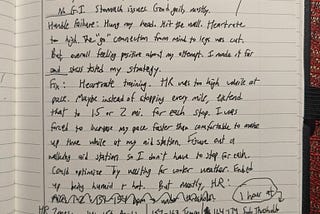 No G.I. Stomach issues. Cramping mostly.
Handle Failure: Hung my head. Hit the wall. Heartrate
too high. The "go" connection from mind to legs was cut.
But overall feeling positive about my attempt. I made it far
and stress tested my strategy.
Fix: Heartrate training. HR was too high while at
pace. Maybe instead of stopping every mile, extend
that to 1.5 or 2 mi. for each stop. I was
forced to increase my pace faster than comfortable to make
up time while at my aid station. Figure out a
walking aid station so I don't have to stop for each.
Could optimize by waiting for winter weather. Ended
up being humid & hot. But mostly, HR.
1 hour at
HR Zones
Sub Threshold